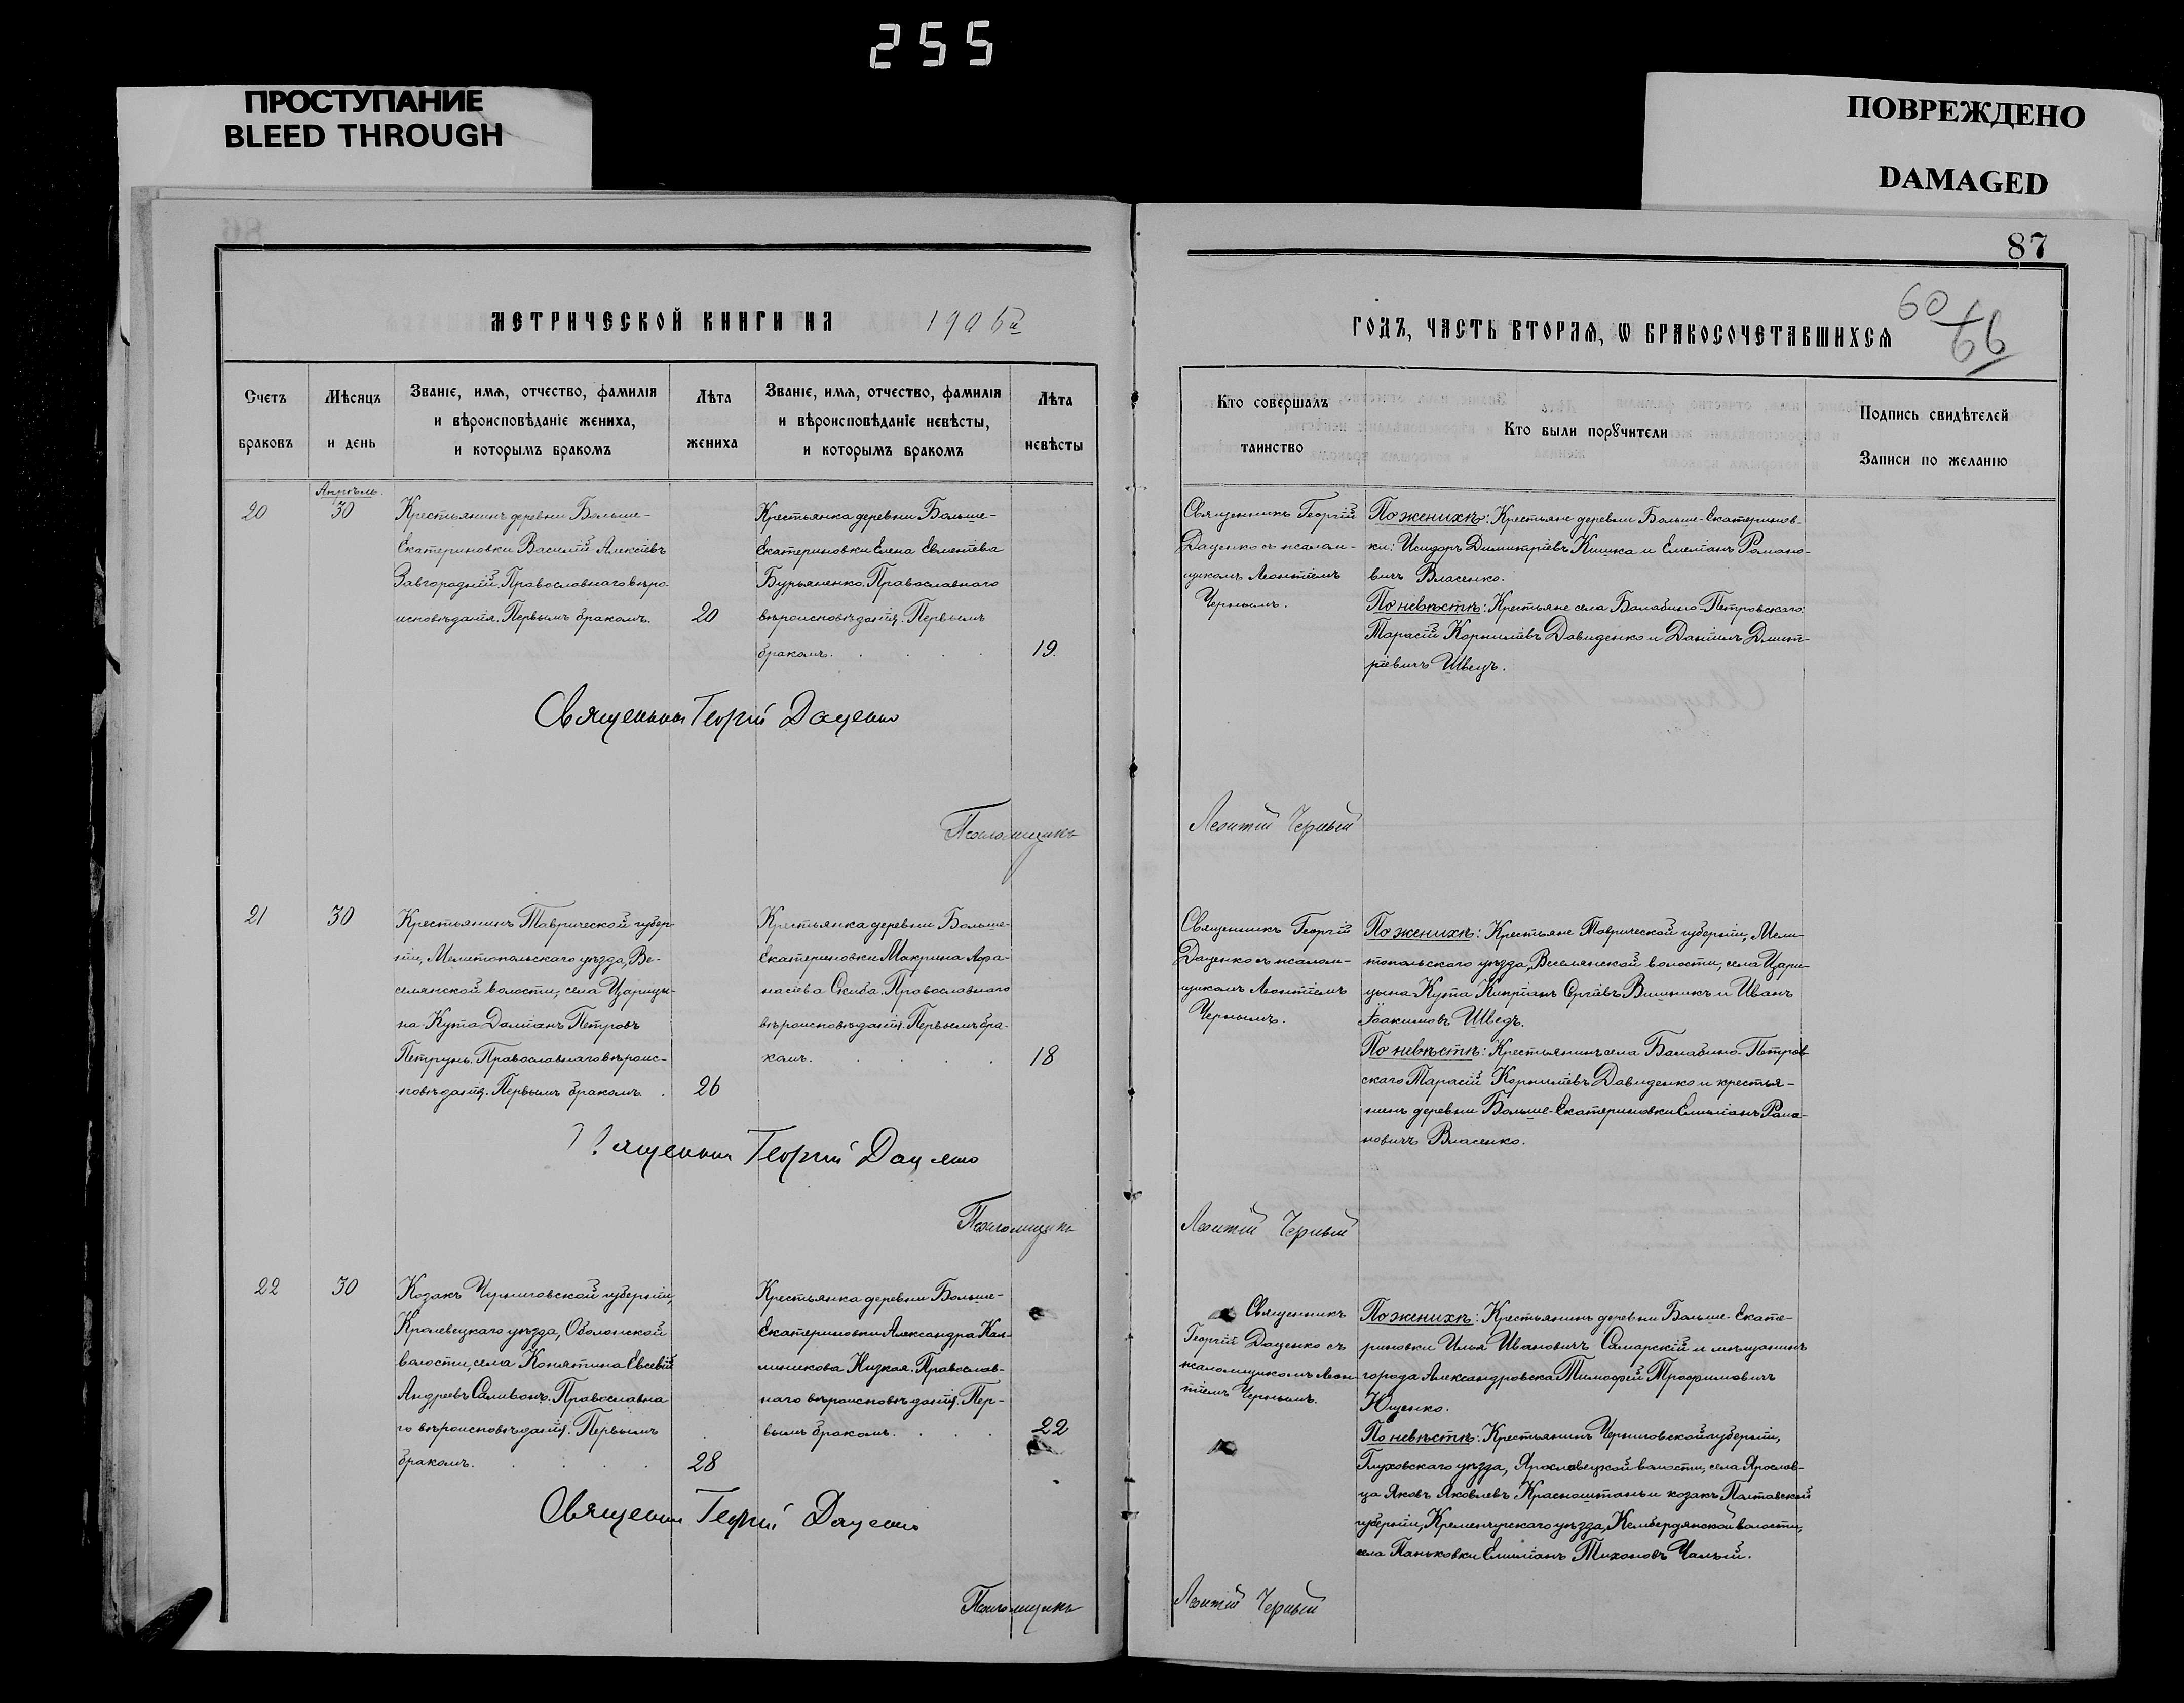 255
ПРОСТУПАНИЕ
BLEED THROUGH
ПОВРЕЖДЕНО
DAMAGED
87
МЕТРИЧЕСКОЙ КНИГИ НА 1906й
Счетъ браковъ
Мѣсяцъ и день
Званіе, имя, отчество, фамилія
и вѣроисповѣданіе жениха,
и которымъ бракомъ
Лѣта жениха
Званіе, имя, отчество, фамилія
и вѣроисповѣданіе невѣсты,
и которымъ бракомъ
Лѣта невѣсты
ГОДЪ, ЧАСТЬ ВТОРАЯ, Ѡ БРАКОСОЧЕТАВШИХСЯ
60
66
Кто совершалъ
таинство
Кто были порꙋчители
Подпись свидѣтелей
Записи по желанію
Апрѣль.
20
30
Крестьянинъ деревни Больше-
Екатериновки Василій Алексіевъ
Завгородній. Православнаго вѣро
исповѣданія. Первымъ бракомъ.
20
Крестьянка деревни Больше-
Екатериновки Елена Евменіева
Бурьяненко. Православнаго
вѣроисповѣданія. Первымъ
бракомъ.
19.
Священникъ Георгій
Даценко съ псалом-
щикомъ Леонтіемъ
Чернымъ.
По женихѣ: Крестьяне деревни Больше-Екатеринов-
ки: Исидоръ Димитріевъ Кишка и Емеліанъ Романо-
вичъ Власенко.
По невѣстѣ: Крестьяне села Балабино-Петровскаго:
Тарасій Корниліевъ Давиденко и Даніилъ Дмит-
ріевичъ Швецъ.
Священникъ Георгій Даценко
Псаломщикъ
Леонтій Черный
21
30
Крестьянинъ Таврической губер-
ніи, Мелитопольскаго уѣзда, Ве-
селянской волости, села Царицы-
на-Кута Даміанъ Петровъ
Петрунь. Православнаго вѣроис-
повѣданія. Первымъ бракомъ.
26
Крестьянка деревни Больше-
Екатериновки Макрина Афа-
насіева Скиба. Православнаго
вѣроисповѣданія. Первымъ бра-
комъ.
18
Священникъ Георгій
Даценко съ псалом-
щикомъ Леонтіемъ
Чернымъ.
По женихѣ: Крестьяне Таврической губерніи, Мели-
топольскаго уѣзда, Веселянской волости, села Цари-
цына Кута Кипріанъ Сергіевъ Вишникъ и Иванъ
Іоакимовъ Шведъ.
По невѣстѣ: Крестьянинъ села Балабино-Петров
скаго Тарасій Корниліевъ Давиденко и крестья-
нинъ деревни Больше-Екатериновки Емиліанъ Рома-
новичъ Власенко.
Священникъ Георгій Даценко
Псаломщикъ
Леонтій Черный
22
30
Козакъ Черниговской губерніи,
Кролевецкаго уѣзда, Оболонской
волости, села Конятина Евсевій
Андреевъ Саливонъ. Православна
го вѣроисповѣданія. Первымъ
бракомъ.
28
Крестьянка деревни Больше-
Екатериновки Александра Кал-
линикова Низкая. Православ-
наго вѣроисповѣданія. Пер-
вымъ бракомъ.
22
Священникъ
Георгій Даценко съ
псаломщикомъ Леон-
тіемъ Чернымъ.
По женихѣ: Крестьянинъ деревни Больше-Екате-
риновки Илья Ивановичъ Самарскій и мѣщанинъ
города Александровска Тимофей Трофимовичъ
Ющенко.
По невѣстѣ: Крестьянинъ Черниговской губерніи,
Глуховскаго уѣзда, Ярославецкой волости, села Ярослав-
ца Яковъ Яковлевъ Красноштанъ и козакъ Полтавской
губерніи, Кременчугскаго уѣзда, Келебердянской волости,
села Паньковки Емиліанъ Тихоновъ Чалый.
Священникъ Георгій Даценко
Псаломщикъ
Леонтій Черный